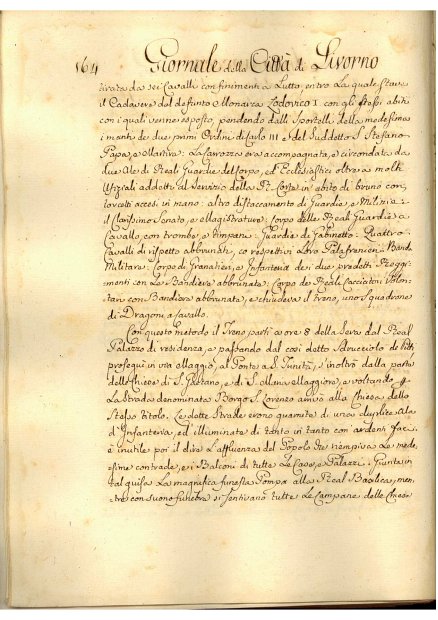 164 Giornale della Città di Livorno
tirata da sei Cavalli con finimenti a Lutto, entro La quale stava
il Cadavere del defunto Monarca Lodovico I. con gli stessi abiti
con i quali venne esposto, pendendo dalli Sportelli della medesima
i manti de due primi Ordini di Carlo III e del Suddetto S. Stefano
Papa, e Martire: La Carrozza era accompagnata, e circondata da
due Ale di Reali Guardie del Corpo, ed Ecclesiastici oltre a molti
Ufiziali addetti al Servizio della Rl. Corte in abito di bruno con
torcetti accesi in mano: altro distaccamento di Guardie, e Milizie: i
il Clarissimo Senato, e Magistrature: Corpo delle Reali Guardie a
Cavallo, con trombe, e timpani: Guardie di Gabinetto: Quattro
Cavalli di rispetto abbrunati, co respettivi Loro Palafrenieri: Banda
Militare: Corpo di Granatieri, e Infanteria de i due predetti Reggi-
menti con Le Bandiere abbrunate: Corpo de Reali Cacciatori Volon-
tari con Bandiera abbrunata, e chiudeva il treno, uno Squadrone
di Dragoni a Cavallo.
Con questo metodo il Treno partì a ore 8 della Sera dal Real
Palazzo di residenza, e passando dal così detto Sdrucciolo de Pitti
proseguì in via Maggio, al Ponte a S. Trinità, s'inoltrò dalla parte
della Chiesa di S. Gaetano, e di S. Maria Maggiore, e voltando p
La Strada denominata Borgo S. Lorenzo arrivò alla Chiesa dello
Stesso titolo. Le dette Strade erono guarnite di una duplice Ala
d'Infanteria, ed illuminate di tanto in tanto con ardenti faci
e inutile poi il dire L'affluenza del Popolo che riempiva Le mede-
sime contrade, e i Balconi di tutte Le Case, e Palazzi. Giunta in
tal guisa La magnifica funesta Pompa alla Real Basilica, men-
tre con suono funebre si sentivano tutte Le Campane delle Chiese